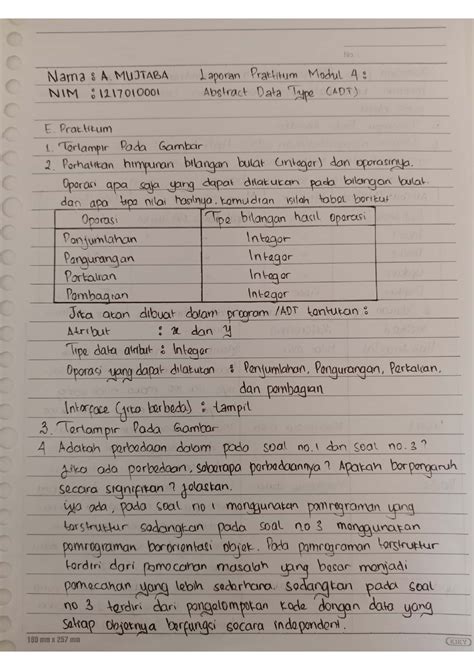 No
Nama : A. MUJTABA Laporan Praktikum Modul 4 :
NIM : 1217010001 Abstract Data Type (ADT)
E. Praktikum
1. Terlampir Pada Gambar
2. Perhatikan himpunan bilangan bulat (integer) dan operasinya.
Operasi apa saja yang dapat dilakukan pada bilangan bulat
dan apa tipe nilai hasilnya. Kemudian isilah tabel berikut
Operasi Tipe bilangan hasil operasi
Penjumlahan Integer
Pengurangan Integer
Perkalian Integer
Pembagian Integer
Jika akan dibuat dalam program /ADT tentukan :
Atribut : x dan y
Tipe data atribut : Integer
Operasi yang dapat dilakukan : Penjumlahan, Pengurangan, Perkalian,
dan pembagian
Interface (jika berbeda) : tampil
3. Terlampir Pada Gambar
4 Adakah perbedaan dalam pada soal no.1 dan soal no.3 ?
Jika ada perbedaan, seberapa perbedaannya ? Apakah berpengaruh
secara signifikan ? jelaskan.
Iya ada, pada soal no 1 menggunakan pemrograman yang
terstruktur sedangkan pada soal no 3 menggunakan
pemrograman berorientasi objek. Pada pemrograman terstruktur
terdiri dari pemecahan masalah yang besar menjadi
pemecahan yang lebih sederhana. sedangkan pada soal
no 3 terdiri dari pengelompokan kode dengan data yang
setiap objeknya berfungsi secara independent.
180 mm x 257 mm
KIKY